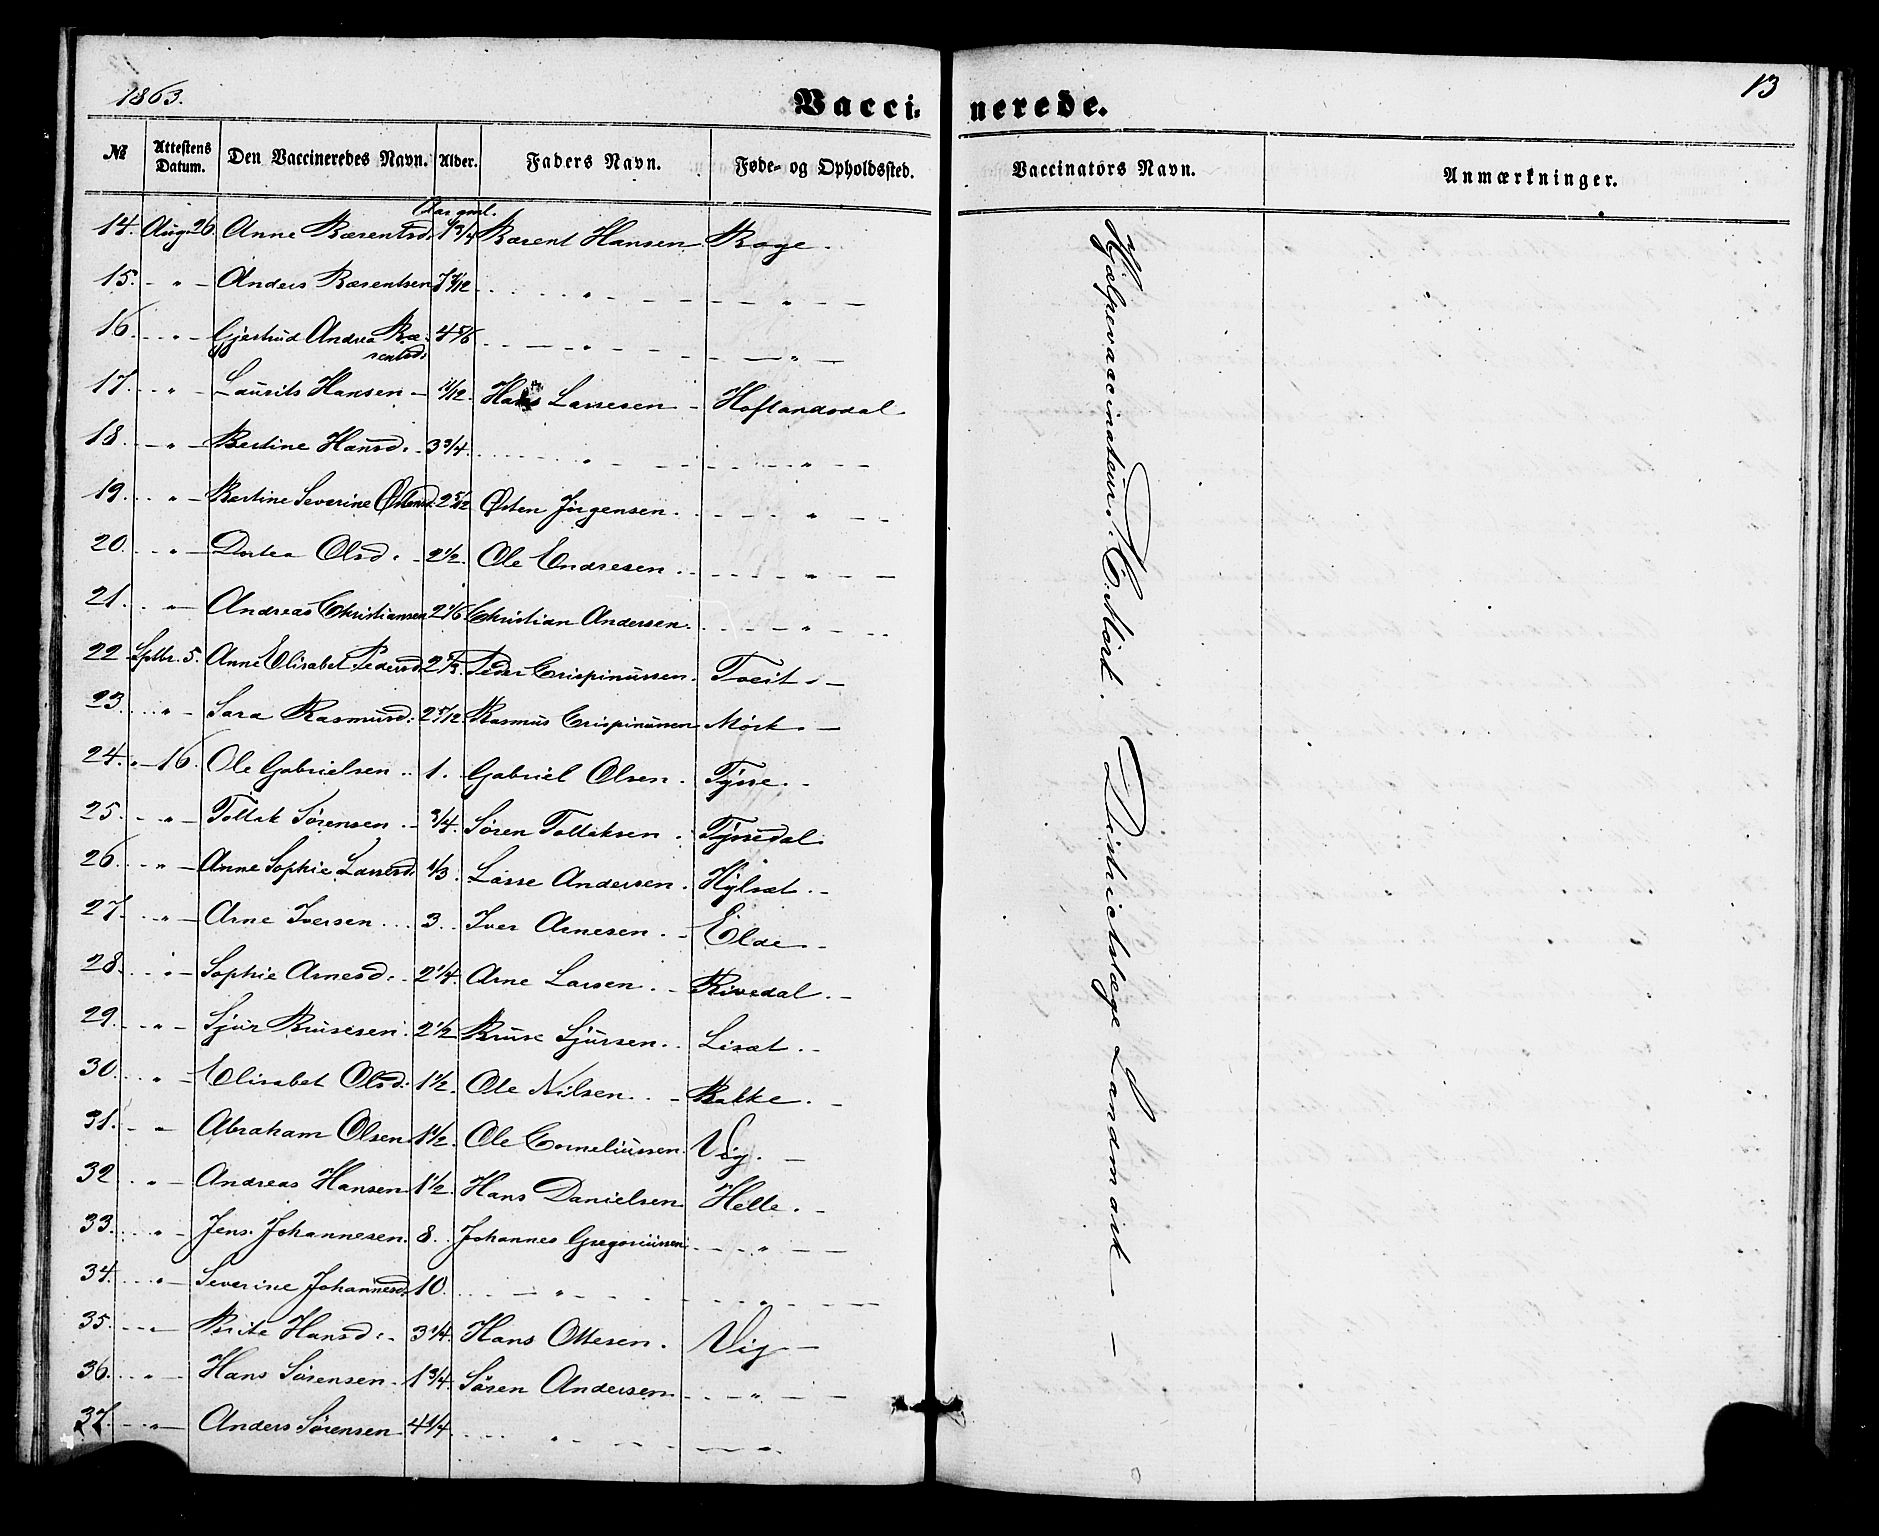 1863.
13
Vaccinerede.
№ Attestens Datum. Den Vaccineredes Navn. Alder. Faders Navn. Føde- og Opholdssted. Vaccinators Navn. Anmærkninger.
Aar gml.
14. Aug. 26. Anne Bærentsd. 1 3/4 Bærent Hansen Bøge.
15. - " - Anders Bærentsen 7 7/12 " "
16. - " - Gjertrud Andrea Bæ- 4 5/6 " "
rentsd.
17. - " - Laurits Hansen - 11/12. Hans Larsesen - Hoflandsdal
18. - " - Bertine Hansd. - 3 3/4. " "
19. - " - Bertine Severine Østensd. 2 5/12 Østen Jørgensen. "
20. - " - Dortea Olsd. - 2 1/2. Ole Endresen. "
21. - " - Andreas Christiansen 2 1/6 Christian Andersen. "
22 Sptbr. 5. Anne Elisabet Pedersd. 2 2/3. Peder Crispinussen. Tveit. -
23. - " - Sara Rasmusd. 2 5/12. Rasmus Crispinussen Mørk. -
24. - 16. Ole Gabrielsen .. 1. Gabriel Olsen. Tysse. -
25. - " - Tollak Sørensen .. 3/4. Søren Tollaksen. Tyssedal.
26. - " - Anne Sophie Larsesd. 1/3. Lasse Andersen. Hylsæt. -
27. - " - Arne Iversen ... 3. Iver Arnesen. - Elde. -
28. - " - Sophie Arnesd. - 2 1/4. Arne Larsen. - Rivedal. -
29. - " - Sjur Brusesen. 2 1/2 Bruse Sjursen. . Lisæt. -
30. - " - Elisabet Olsd. 1 1/2. Ole Nilsen. . - Bakke. -
31. - " - Abraham Olsen. 1 1/2. Ole Corneliussen. Vig. -
32. - " - Andreas Hansen 1 1/2. Hans Danielsen Helle. -
33. - " - Jens Johannesen. 8. Johannes Gregoriussen "
34. - " - Severine Johannesd. 10. " "
35. - " - Brite Hansd. - 3 1/4. Hans Ottesen. Vig -
36. - " - Hans Sørensen. 1 3/4. Søren Andersen. "
37. - " - Anders Sørensen 4 1/4 " "
Hjælpevaccinateur T. C. Mørk. Districtslæge Landmark - -